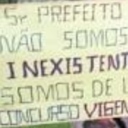 Sr PREFEITO
NÃO SOMOS
INEXISTENT
SOMOS DE U
CONCURSO VIGEN